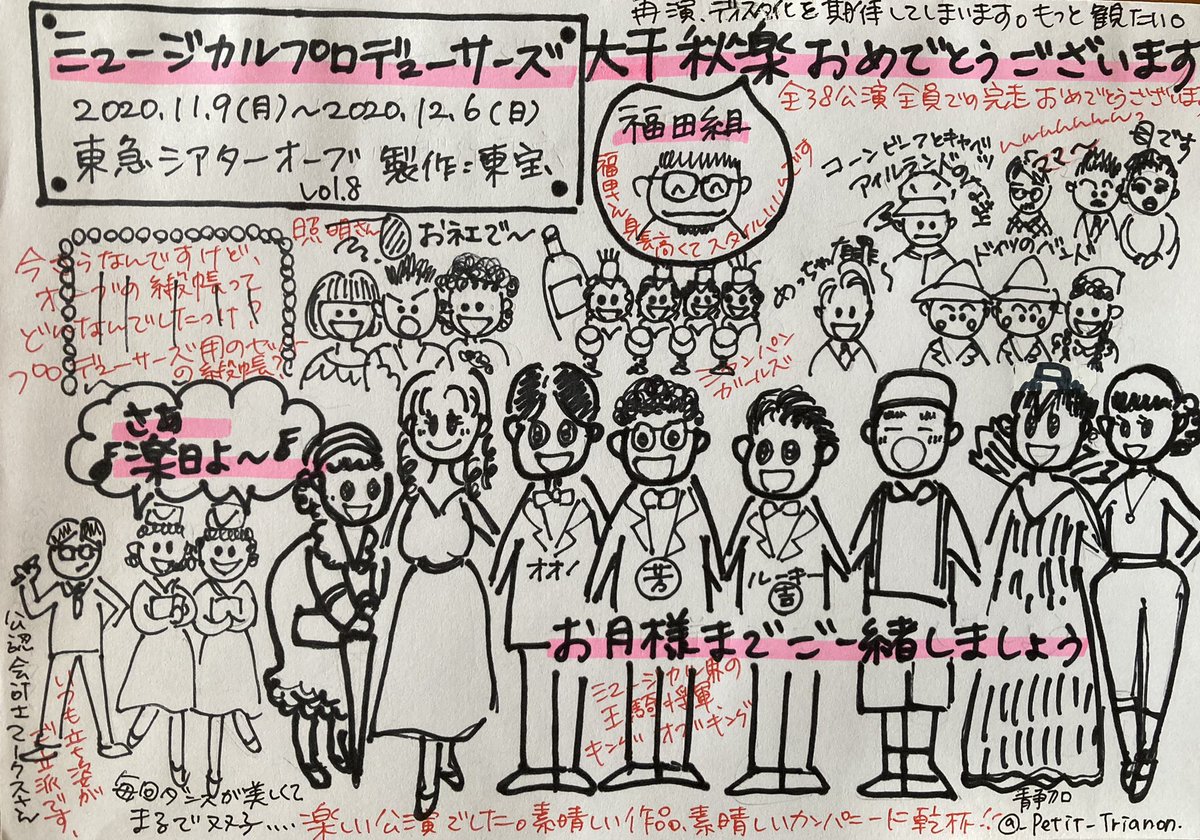 再演、ディスク化を期待してしまいます。もっと観たい。
ミュージカルプロデューサーズ
大千秋楽おめでとうございます
2020.11.9(月)〜2020.12.6(日)
東急シアターオーブ 製作:東宝
vol.8
全38公演全員での完走おめでとうございます
福田組
福田さん身長高くてスタイルいいです
コーンビーフとキャベツ
アイルランドの
ママ〜
母です
ドイツのバンド
照明さん
お衣で〜
めっちゃ
シャンパン
ガールズ
今さらなんですけど、
オーブの緞帳って
どんなんでしたっけ?
プロデューサーズ用の
の緞帳?
さあ
楽日よ〜
オオノ
芳
ルーキー
お月様までご一緒しましょう
ミュージカル界の
王騎将軍、
キング オブ キング
公認会計士マークスさん
いつも立ち姿が
ご立派です。
毎回ダンスが美しくて
まるで双子....
楽しい公演でした。素晴しい作品、素晴しいカンパニーに乾杯
@_Petit_Trianon.